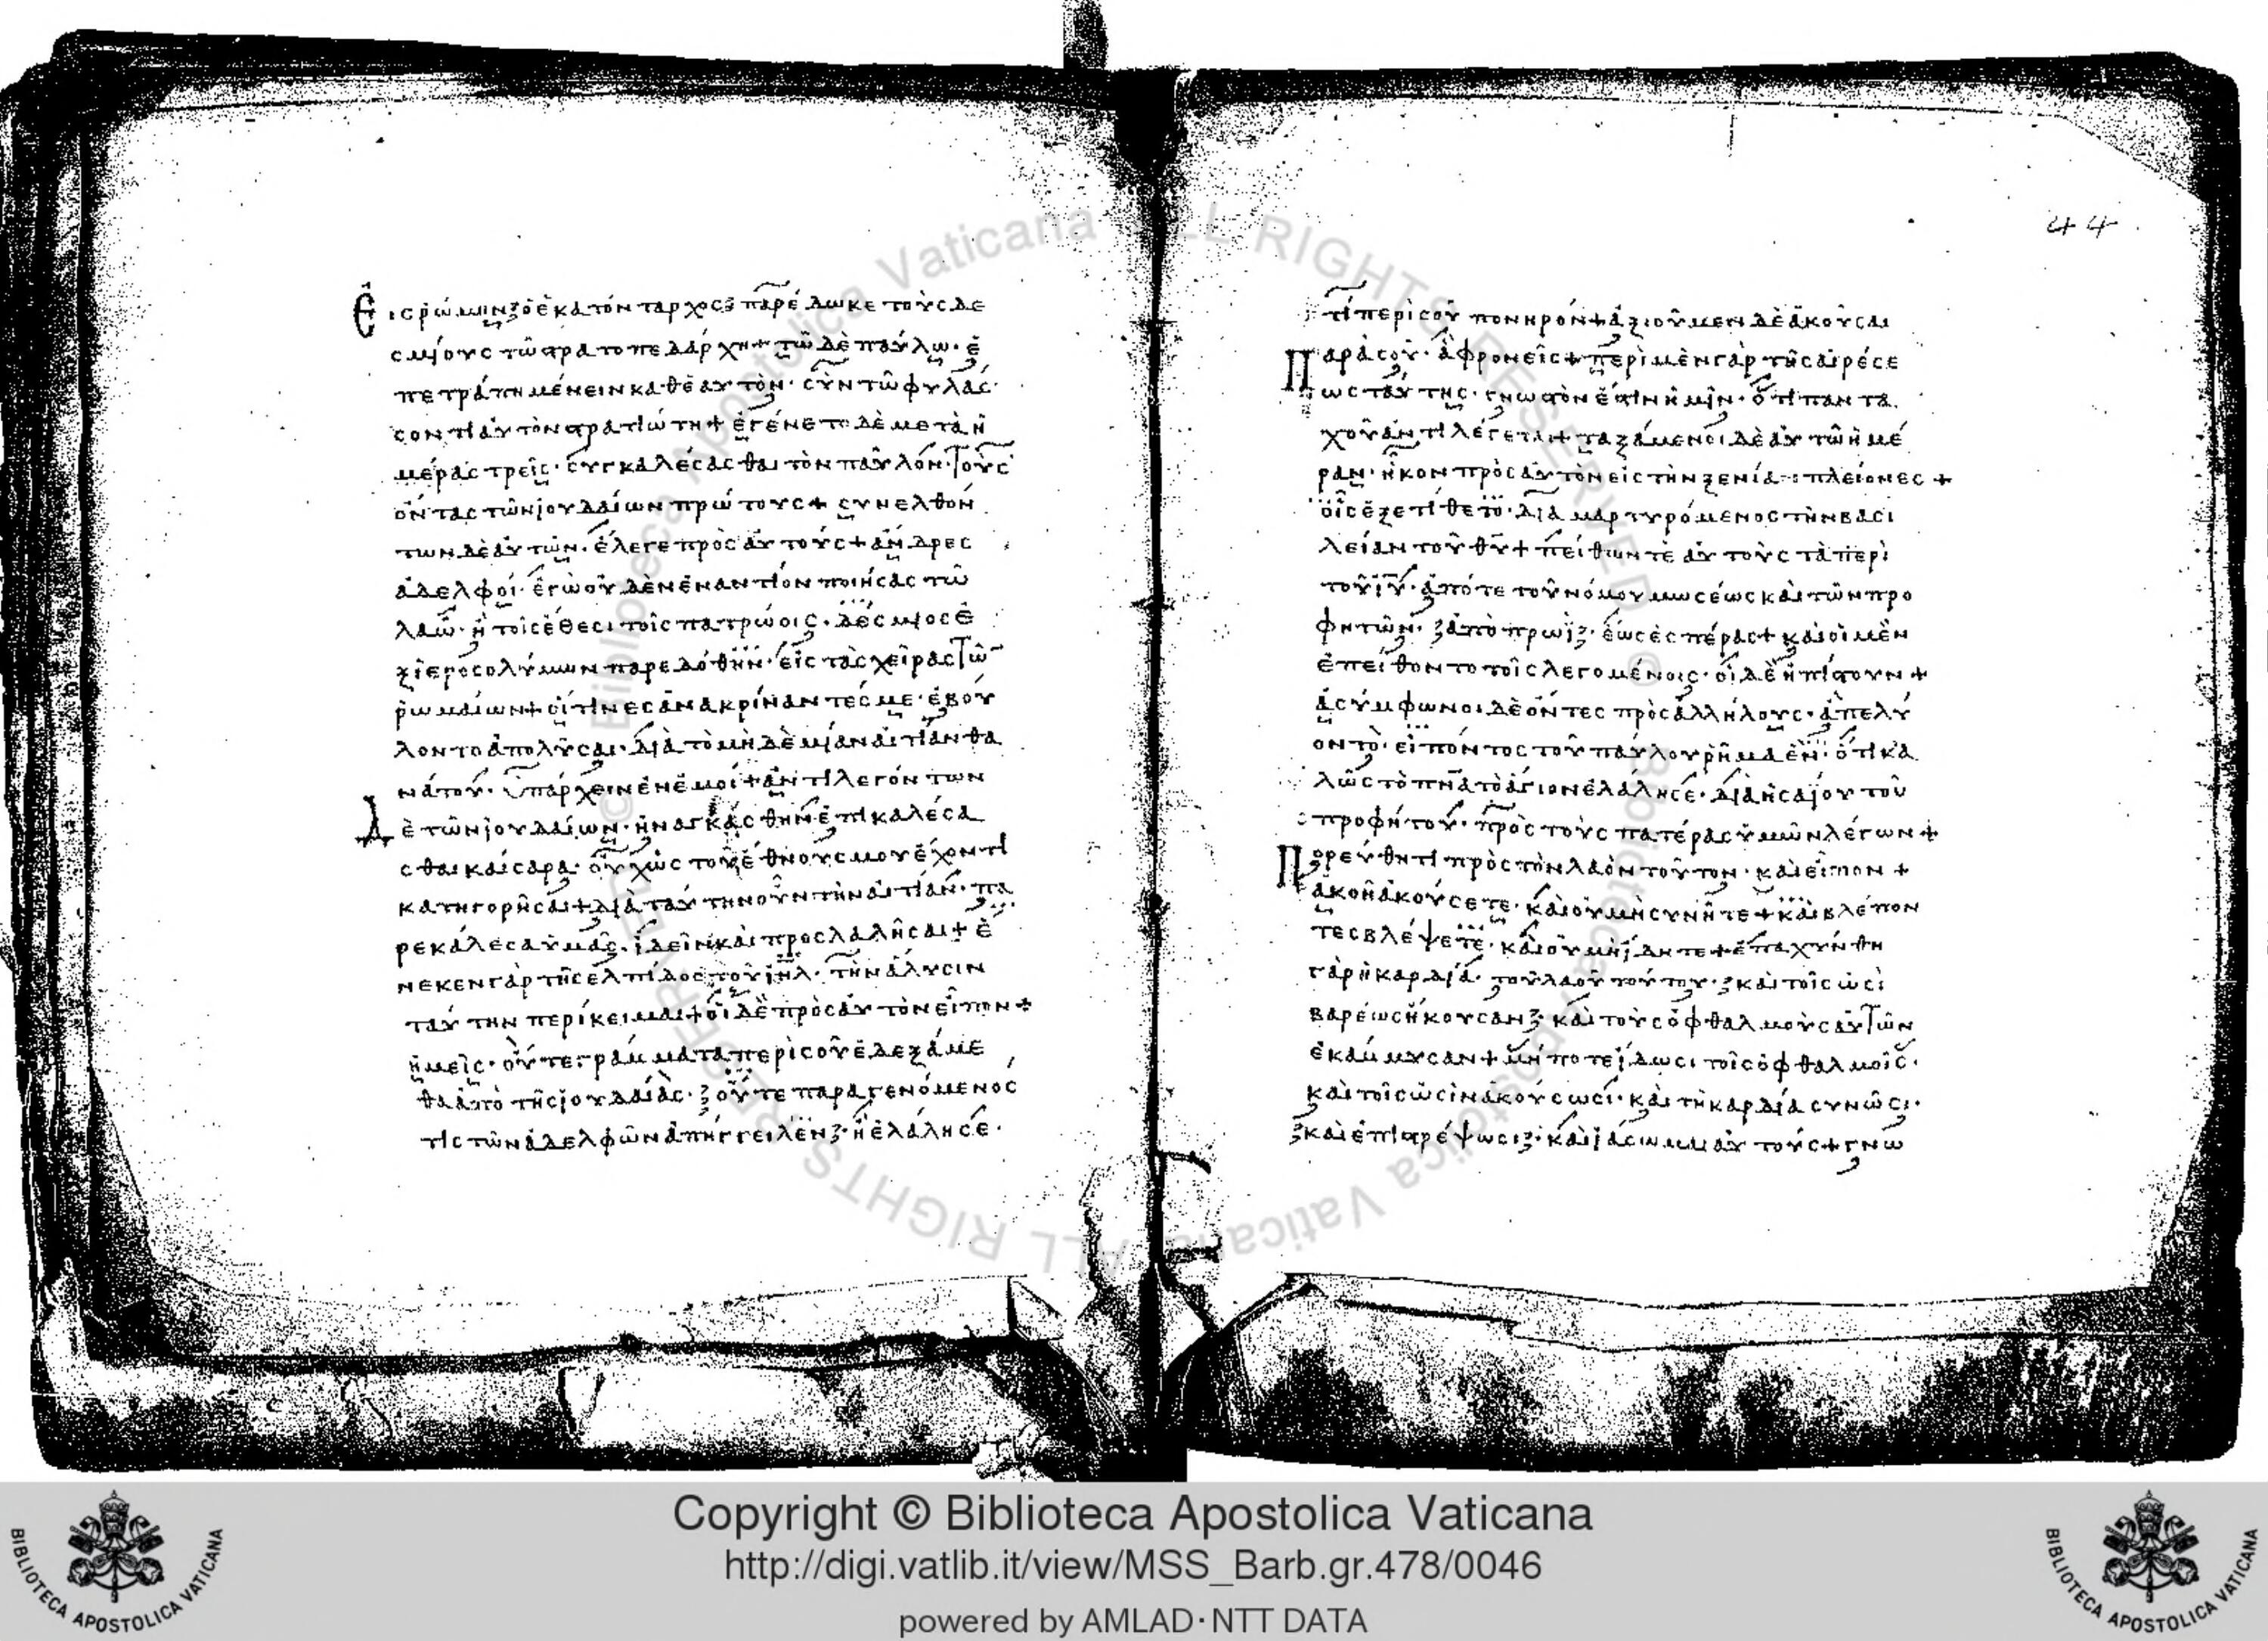 Εἰς ῥώμην ὁ ἑκατόνταρχος παρέδωκε τοὺς δε
σμίους τῶ στρατοπεδάρχη + τῶ δὲ παύλω · ἐ
πετράπη μένειν καθ ἑαυτὸν · σὺν τῶ φυλάσ
σοντι αὐτὸν στρατιώτη + ἐγένετο δὲ μετὰ ἡ
μέρας τρεῖς · συγκαλέσασθαι τὸν παῦλον · τοὺς
ὄντας τῶν ἰουδαίων πρώτους + συνελθόν
των δὲ αὐτῶν · ἔλεγε πρὸς αὐτούς + ἄνδρες
ἀδελφοί · ἐγὼ οὐδὲν ἐναντίον ποιήσας τῶ
λαῶ · ἢ τοῖς ἔθεσι τοῖς πατρώοις · δέσμιος ἐ
ξ ἱεροσολύμων παρεδόθην · εἰς τὰς χεῖρας τῶ
ῥωμαίων + οἵτινες ἀνακρίναντές με · ἐβού
λοντο ἀπολῦσαι · διὰ τὸ μὴδὲμίαν αἰτίαν θα
νάτου · ὑπάρχειν ἐν ἐμοί + ἀντιλεγόντων
Δὲ τῶν ἰουδαίων · ἠναγκάσθην ἐπικαλέσα
σθαι καίσαρα · οὐχ ὡς τοῦ ἔθνους μου ἔχον τι
κατηγορῆσαι + διὰ ταύτην οὖν τὴν αἰτίαν · πα
ρεκάλεσα ὑμᾶς · ἰδεῖν καὶ προσλαλῆσαι + ἕ
νεκεν γὰρ τῆς ἐλπίδος τοῦ ἰηλ · τὴν ἅλυσιν
ταύτην περίκειμαι + οἱ δὲ πρὸς αὐτὸν εἶπον +
ἡμεῖς · οὔτε γράμματα περὶ σοῦ ἐδεξάμε
θα ἀπὸ τῆς ἰουδαίας · οὔτε παραγενόμενός
τις τῶν ἀδελφῶν ἀπήγγειλεν · ἢ ἐλάλησέ ·
44
τί περὶ σοῦ πονηρόν + ἀξιοῦμεν δὲ ἀκοῦσαι
Παρὰ σοῦ · ἃ φρονεῖς + περὶ μὲν γὰρ τῆς αἱρέσε
ως ταύτης · γνωστὸν ἐστὶν ἡμῖν · ὅτι παντα
χοῦ ἀντιλέγεται + ταξάμενοι δὲ αὐτῶ ἡμέ
ραν · ἧκον πρὸς αὐτὸν εἰς τὴν ξενία πλείονες +
οἷς ἐξετίθετο · διαμαρτυρόμενος τὴν βασι
λείαν τοῦ θυ + πείθων τὲ αὐτοὺς τὰ περὶ
τοῦ ιυ · ἀπό τε τοῦ νόμου μωσέως καὶ τῶν προ
φητῶν · ἀπὸ πρωῒ · ἕως ἑσπέρας + καὶ οἱ μὲν
ἐπείθοντο τοῖς λεγομένοις · οἱ δὲ ἠπίστουν +
ἀσύμφωνοι δὲ ὄντες πρὸς ἀλλήλους · ἀπελύ
οντο · εἰπόντος τοῦ παύλου ῥῆμα ἕν · ὅτι κα
λῶς τὸ πνα τὸ ἅγιον ἐλάλησε · διὰ ἡσαΐου τοῦ
προφήτου · πρὸς τοὺς πατέρας ὑμῶν λέγων +
Πορεύθητι πρὸς τὸν λαὸν τοῦτον · καὶ εἶπον +
ἀκοῆ ἀκούσετε · καὶ οὐ μὴ συνῆτε + καὶ βλέπον
τες βλέψετε · καὶ οὐ μὴ ἴδητε + ἐπαχύνθη
γὰρ ἡ καρδία · τοῦ λαοῦ τούτου · καὶ τοῖς ὠσὶ
βαρέως ἤκουσαν · καὶ τοὺς ὀφθαλμοὺς αὐτῶν
ἐκάμμυσαν + μή ποτε ἴδωσι τοῖς ὀφθαλμοῖς ·
καὶ τοῖς ὠσὶν ἀκούσωσι · καὶ τῆ καρδία συνῶσι ·
καὶ ἐπιστρέψωσι · καὶ ἰάσωμαι αὐτούς + γνω
Copyright © Biblioteca Apostolica Vaticana
http://digi.vatlib.it/view/MSS_Barb.gr.478/0046
powered by AMLAD·NTT DATA
BIBLIOTECA APOSTOLICA VATICANA
BIBLIOTECA APOSTOLICA VATICANA